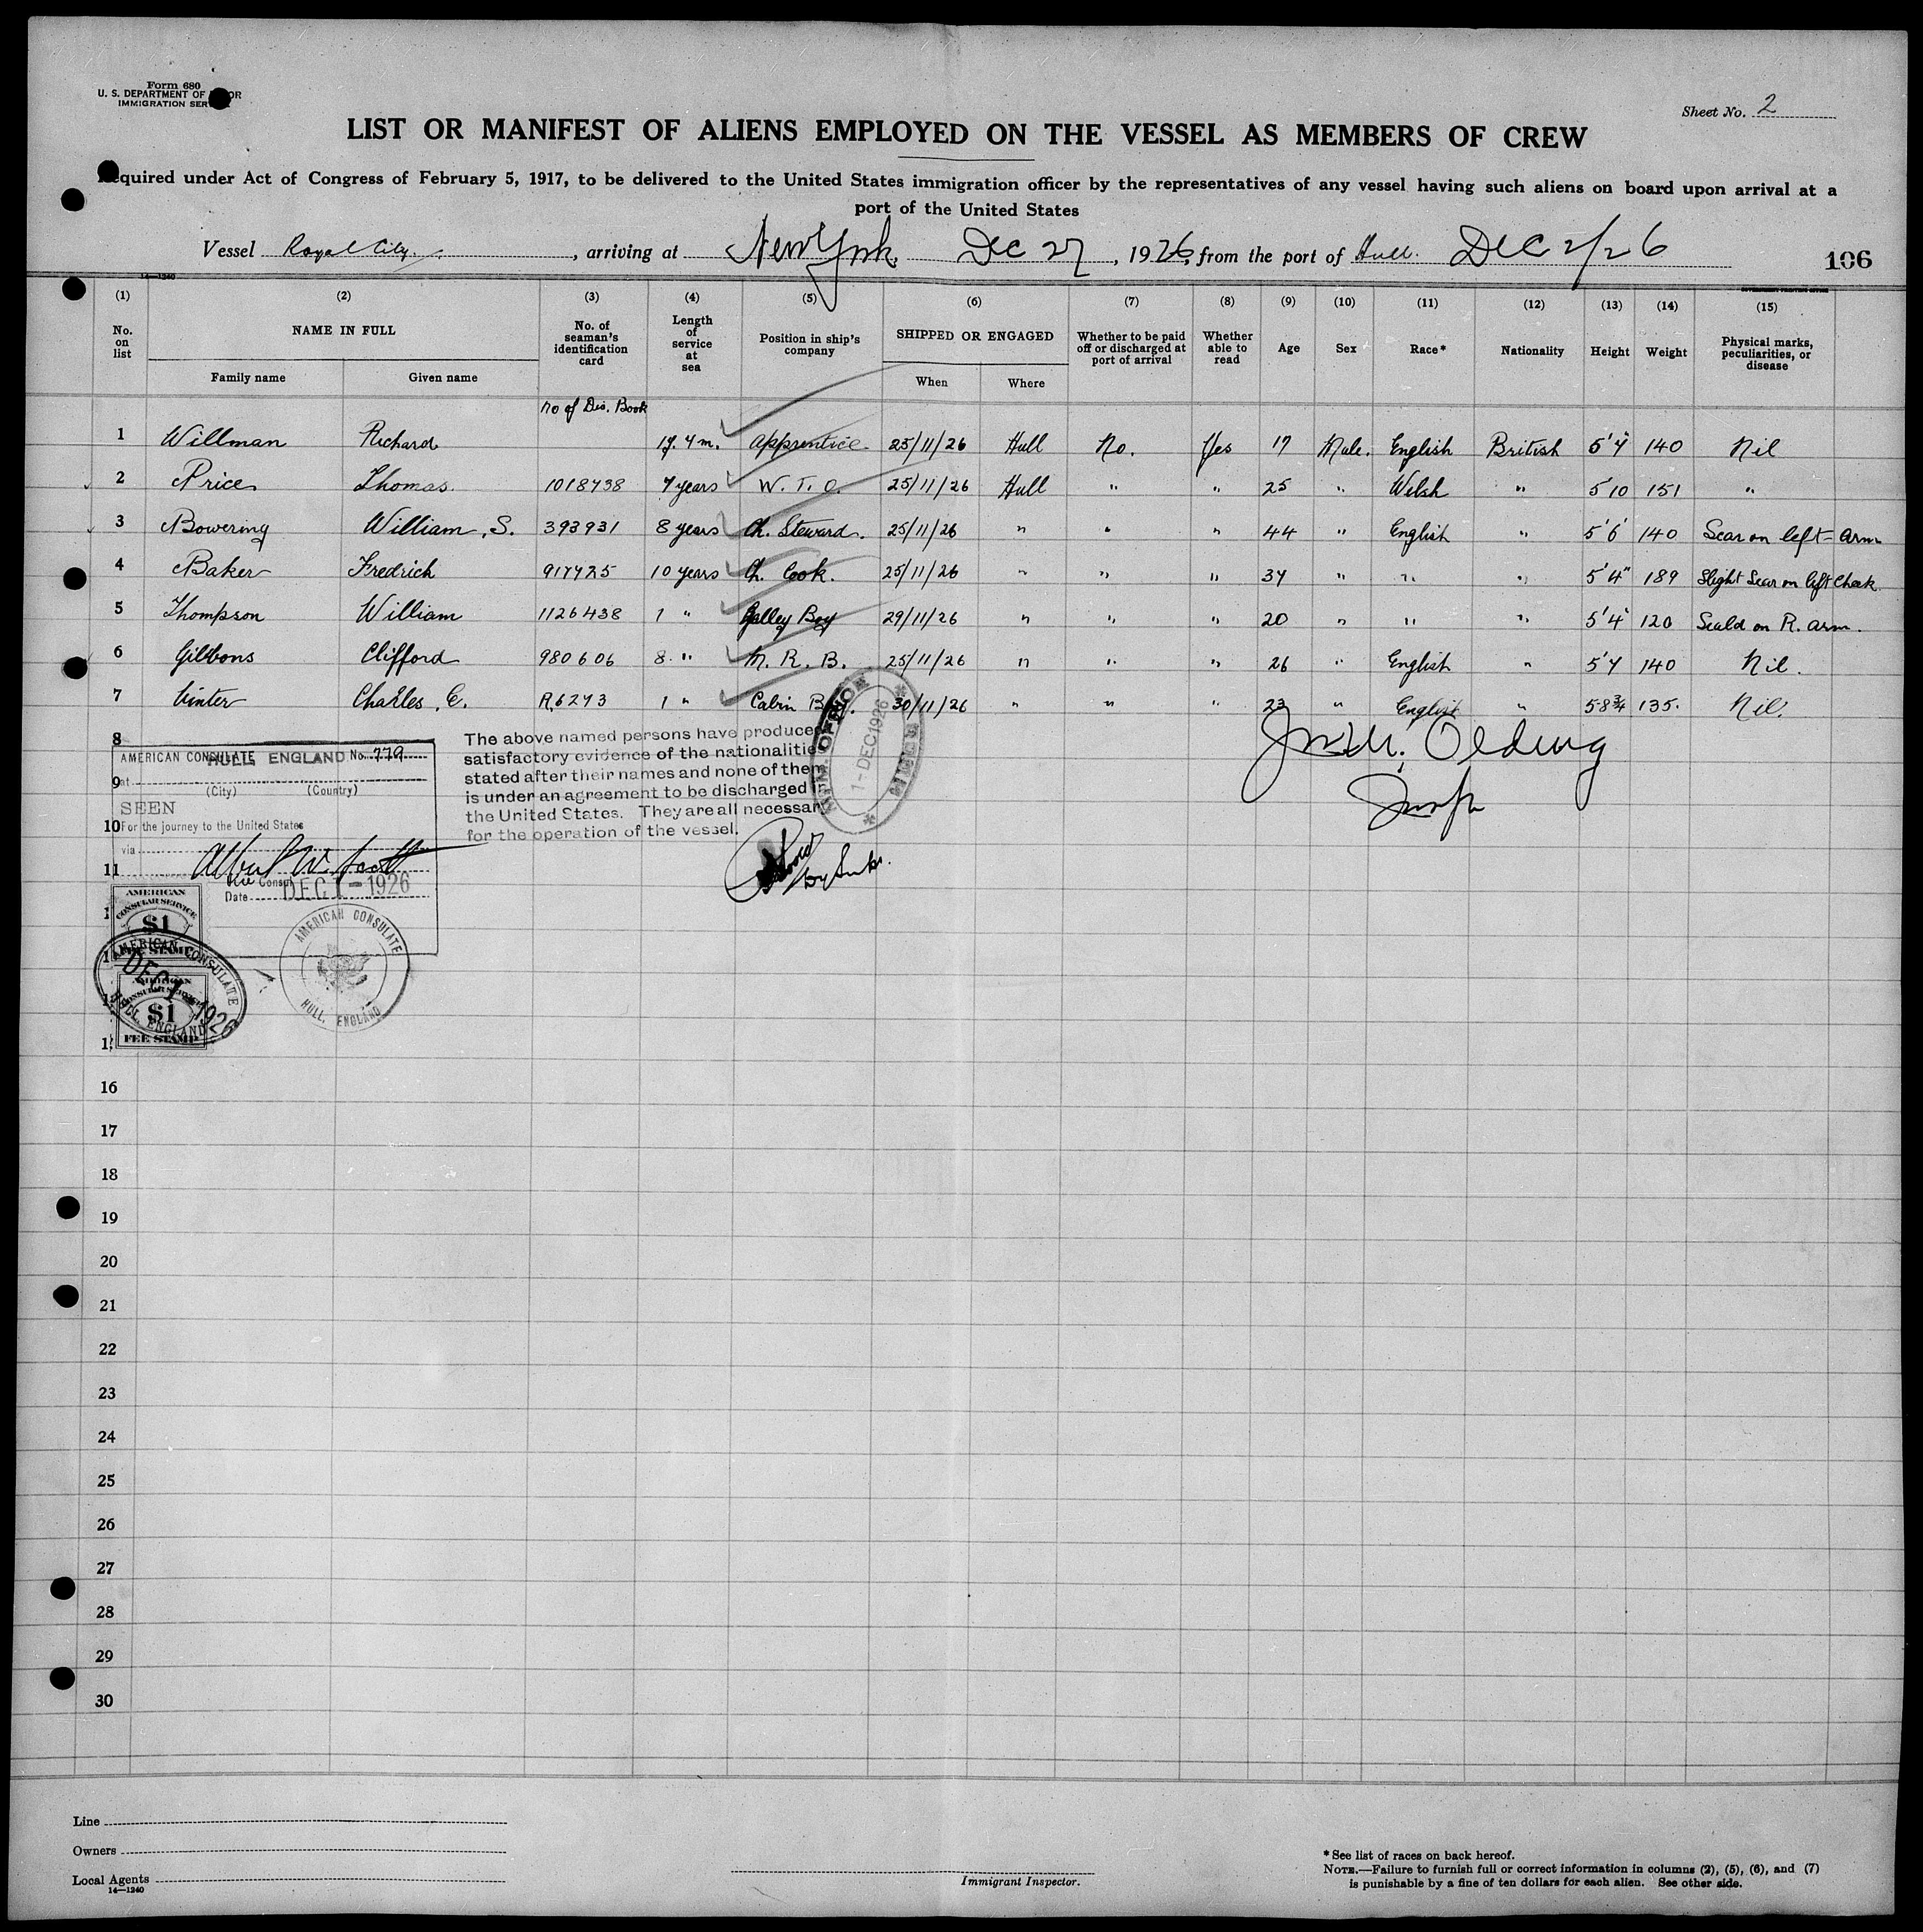 Form 680
U. S. DEPARTMENT OF LABOR
IMMIGRATION SERVICE
Sheet No. 2
LIST OR MANIFEST OF ALIENS EMPLOYED ON THE VESSEL AS MEMBERS OF CREW
Required under Act of Congress of February 5, 1917, to be delivered to the United States immigration officer by the representatives of any vessel having such aliens on board upon arrival at a
port of the United States
Vessel Royal City., arriving at New York, Dec 27, 1926, from the port of Hull. Dec 2/26
106
14—1240
(1) (2) (3) (4) (5) (6) (7) (8) (9) (10) (11) (12) (13) (14) (15)
No. on list NAME IN FULL No. of seaman's identification card Length of service at sea Position in ship's company SHIPPED OR ENGAGED Whether to be paid off or discharged at port of arrival Whether able to read Age Sex Race* Nationality Height Weight Physical marks, peculiarities, or disease
Family name Given name When Where
no of Dis. Book
1 Willman Richard 1y. 4m. Apprentice 25/11/26 Hull No. Yes 17 Male. English British 5'7" 140 Nil
2 Price Thomas 1018738 7 years W. T. O. 25/11/26 Hull " " 25 " Welsh " 5'10 151 "
3 Bowering William, S. 393931 8 years Ch. Steward. 25/11/26 " " " 44 " English " 5'6" 140 Scar on left arm
4 Baker Fredrich 917725 10 years Ch. Cook. 25/11/26 " " " 37 " " " 5'4" 189 Slight Scar on left Cheek
5 Thompson William 1126438 1 " Galley Boy 29/11/26 " " " 20 " " " 5'4" 120 Scald on R. arm.
6 Gibbons Clifford 980606 8 " M. R. B. 25/11/26 " " " 26 " English " 5'7 140 Nil.
7 Vinter Charles, C. R,6273 1 " Cabin Boy. 30/11/26 " " " 23 " English " 5 8¾ 135. Nil.
8
9
10
11
The above named persons have produced
satisfactory evidence of the nationalities
stated after their names and none of them
is under an agreement to be discharged in
the United States. They are all necessary
for the operation of the vessel.
1-DEC 1926
AMERICAN CONSULATE No. 779
HULL, ENGLAND
at
(City) (Country)
SEEN
For the journey to the United States
via
Albert W. Scott
Vice Consul
Date DEC 1-1926
AMERICAN
CONSULAR SERVICE
$1
FEE STAMP
AMERICAN CONSULATE
DEC 1 1926
HULL, ENGLAND
AMERICAN
CONSULAR SERVICE
$1
FEE STAMP
AMERICAN CONSULATE
HULL, ENGLAND
16
17
18
19
20
21
22
23
24
25
26
27
28
29
30
Line
Owners
Local Agents
14—1240
Immigrant Inspector.
*See list of races on back hereof.
NOTE.—Failure to furnish full or correct information in columns (2), (5), (6), and (7)
is punishable by a fine of ten dollars for each alien. See other side.